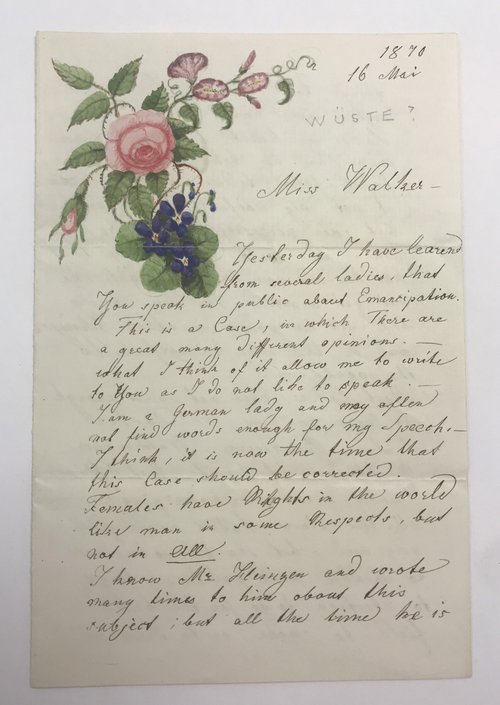 1870
16 Mai
WÜSTE?
Miss Walker —
Yesterday I have learend
from several ladies, that
You speak in public about Emancipation.
This is a Case, in which There are
a great many different opinions. —
what I think of it allow me to write
to You as I do not like to speak. —
I am a German lady and may often
not find words enough for my speech. —
I think, it is now the time that
this Case should be corrected.
Females have Rights in the world
like man in some Respects, but
not in all.
I know Mr Heinzen and wrote
many times to him about this
subject; but all the time he is